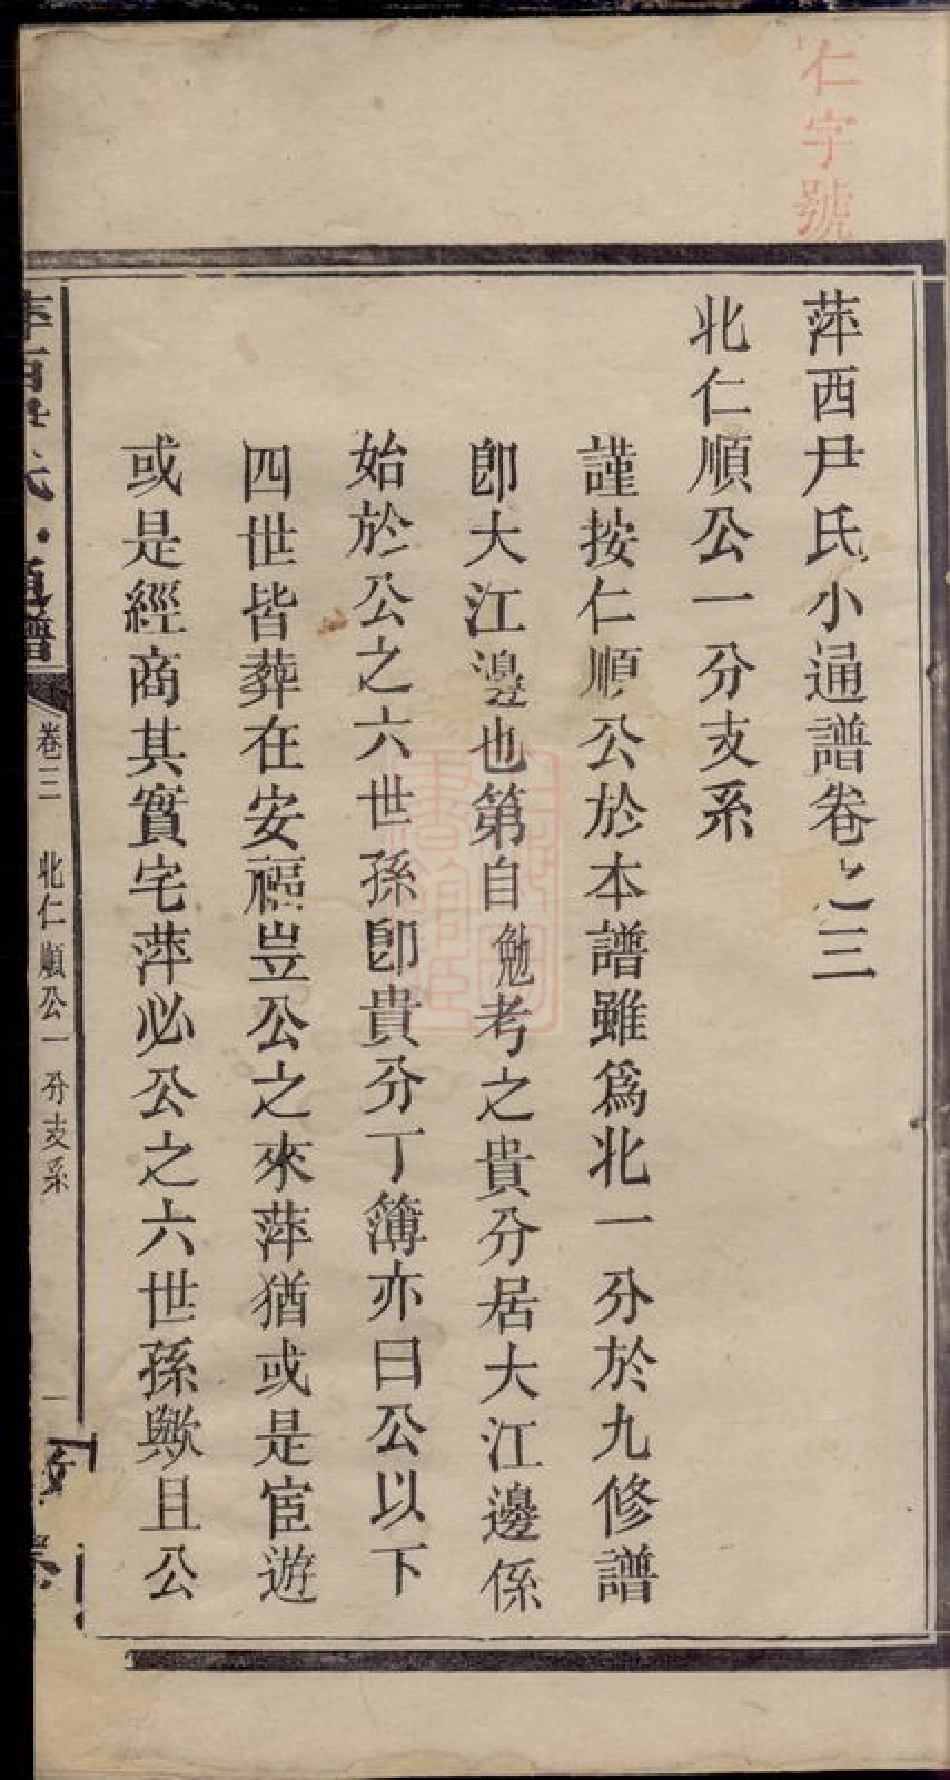 仁字號
萍西尹氏小通譜卷之三
北仁順公一分支系
謹按仁順公於本譜雖爲北一分於九修譜
卽大江邊也第自勉考之貴分居大江邊係
始於公之六世孫卽貴分丁簿亦曰公以下
四世皆葬在安福豈公之來萍猶或是宦遊
或是經商其實宅萍必公之六世孫歟且公
萍西尹氏小通譜
卷三
北仁順公一分支系
一